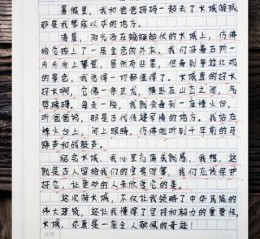 暑假里，我和爸爸妈妈一起去了长城游玩
那是我梦寐以求的地方。
清晨，阳光洒在蜿蜒起伏的长城上，仿佛
给它披上了一层金色的外衣。我们沿着台阶一
步一步向上攀登，虽然有些累，但看到旁边壮丽
的景色，我觉得一切都值得了。长城真的好长
好长啊，它像一条巨龙，横卧在山峦之间，气
势磅礴。每走一段，我就会看到一座烽火台。
听爸爸说，那是古代传递军情的地方。我站在
烽火台上，闭上眼睛，仿佛能听到千年前的马
蹄声和战鼓声。
站在长城，我心里充满成就感。我想，这
就是古人留给我们的宝贵财富，我们应该保护
好它，让更多的人来欣赏它的美。
这次游长城，不仅让我领略了中华民族的
伟大建筑，还让我懂得了坚持和努力的重要性。
长城，你真是一座令人敬佩的奇迹！